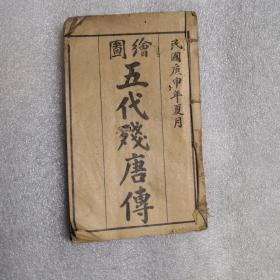 民國庚申年夏月
繪圖
五代殘唐傳